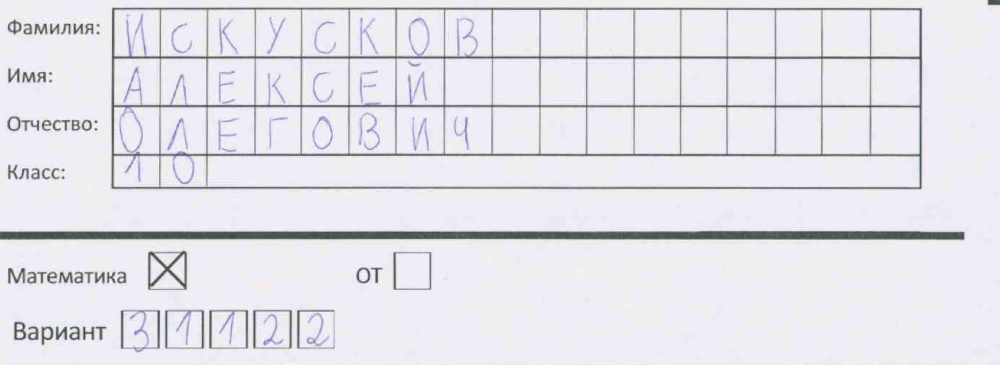 Фамилия: ИСКУСКОВ
Имя: АЛЕКСЕЙ
Отчество: ОЛЕГОВИЧ
Класс: 10
Математика ОТ
Вариант 31122